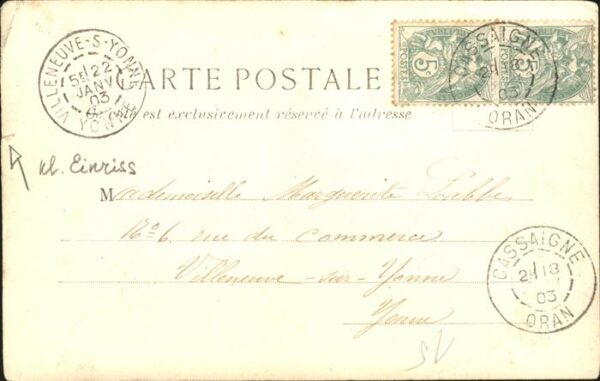 VILLENEUVE-S-YONNE
5E 22
JANV
03
YONNE
CARTE POSTALE
5c
5c
CASSAIGNE
2E 18
03
ORAN
est exclusivement réservé à l'adresse
kl. Einriss
Mademoiselle Marguerite Labbe
No 6 rue du Commerce
Villeneuve-sur-Yonne
Yonne
CASSAIGNE
2E 18
03
ORAN